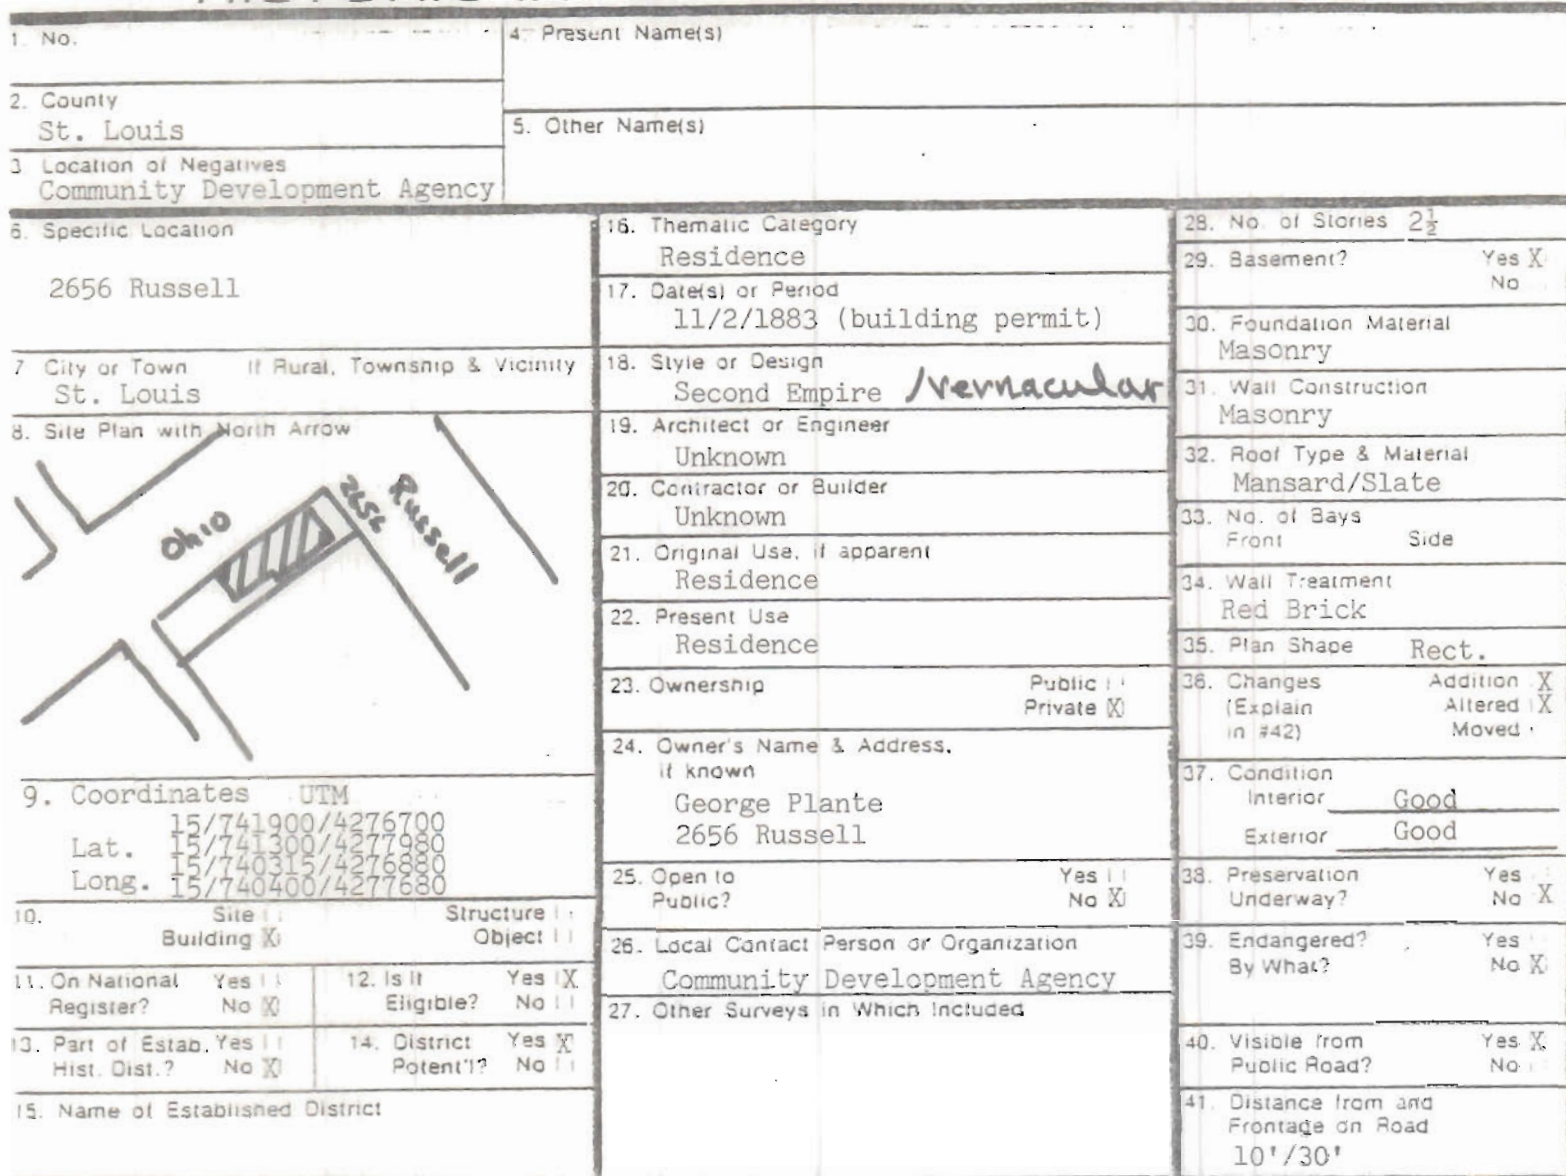 1. No.
4. Present Name(s)
2. County
St. Louis
5. Other Name(s)
3 Location of Negatives
Community Development Agency
6. Specific Location
2656 Russell
7 City or Town If Rural, Township & Vicinity
St. Louis
8. Site Plan with North Arrow
Ohio
2656
Russell
9. Coordinates UTM
15/741900/4276700
Lat. 15/741300/4277980
15/740315/4276880
Long. 15/740400/4277680
10. Site Structure
Building X Object
11. On National Register? Yes No X
12. Is It Eligible? Yes X No
13. Part of Estab. Hist. Dist.? Yes No X
14. District Potent'l? Yes X No
15. Name of Established District
16. Thematic Category
Residence
17. Date(s) or Period
11/2/1883 (building permit)
18. Style or Design
Second Empire /vernacular
19. Architect or Engineer
Unknown
20. Contractor or Builder
Unknown
21. Original Use, if apparent
Residence
22. Present Use
Residence
23. Ownership Public
Private X
24. Owner's Name & Address,
if known
George Plante
2656 Russell
25. Open to Yes
Public? No X
26. Local Contact Person or Organization
Community Development Agency
27. Other Surveys in Which Included
28. No. of Stories 2½
29. Basement? Yes X
No
30. Foundation Material
Masonry
31. Wall Construction
Masonry
32. Roof Type & Material
Mansard/Slate
33. No. of Bays
Front Side
34. Wall Treatment
Red Brick
35. Plan Shape Rect.
36. Changes Addition X
(Explain Altered X
in #42) Moved
37. Condition
Interior Good
Exterior Good
38. Preservation Yes
Underway? No X
39. Endangered? Yes
By What? No X
40. Visible from Yes X
Public Road? No
41. Distance from and
Frontage on Road
10'/30'